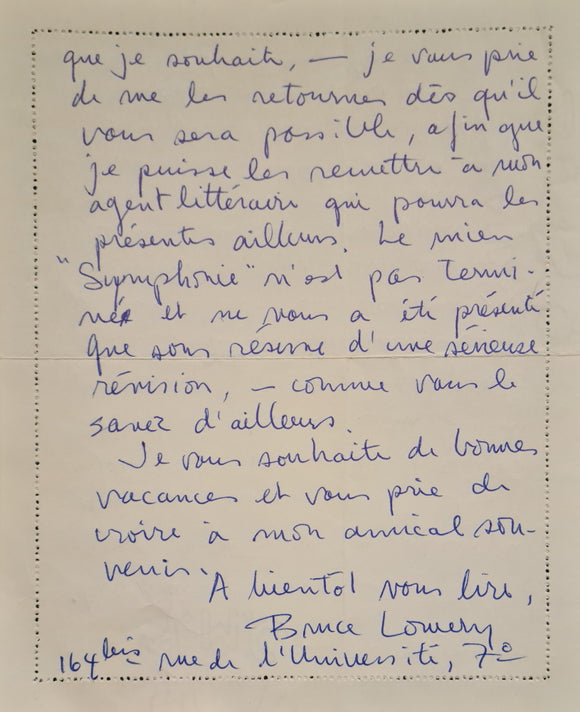 que je souhaite, — je vous prie
de me les retourner dès qu'il
vous sera possible, afin que
je puisse les remettre à mon
agent littéraire qui pourra les
présenter ailleurs. Le mien
"Symphonie" n'est pas termi-
née et ne vous a été présenté
que sous réserve d'une sérieuse
révision, — comme vous le
savez d'ailleurs.
Je vous souhaite de bonnes
vacances et vous prie de
croire à mon amical sou-
venir.
A bientôt vous lire,
Bruce Lowery
164 bis rue de l'Université, 7e